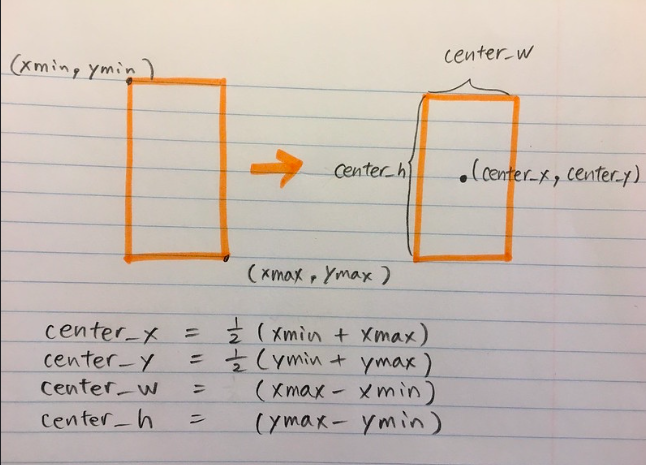 (xmin, ymin)
center_w
center_h
(center_x, center_y)
(xmax, ymax)
center_x = 1/2 (xmin + xmax)
center_y = 1/2 (ymin + ymax)
center_w = (xmax - xmin)
center_h = (ymax - ymin)